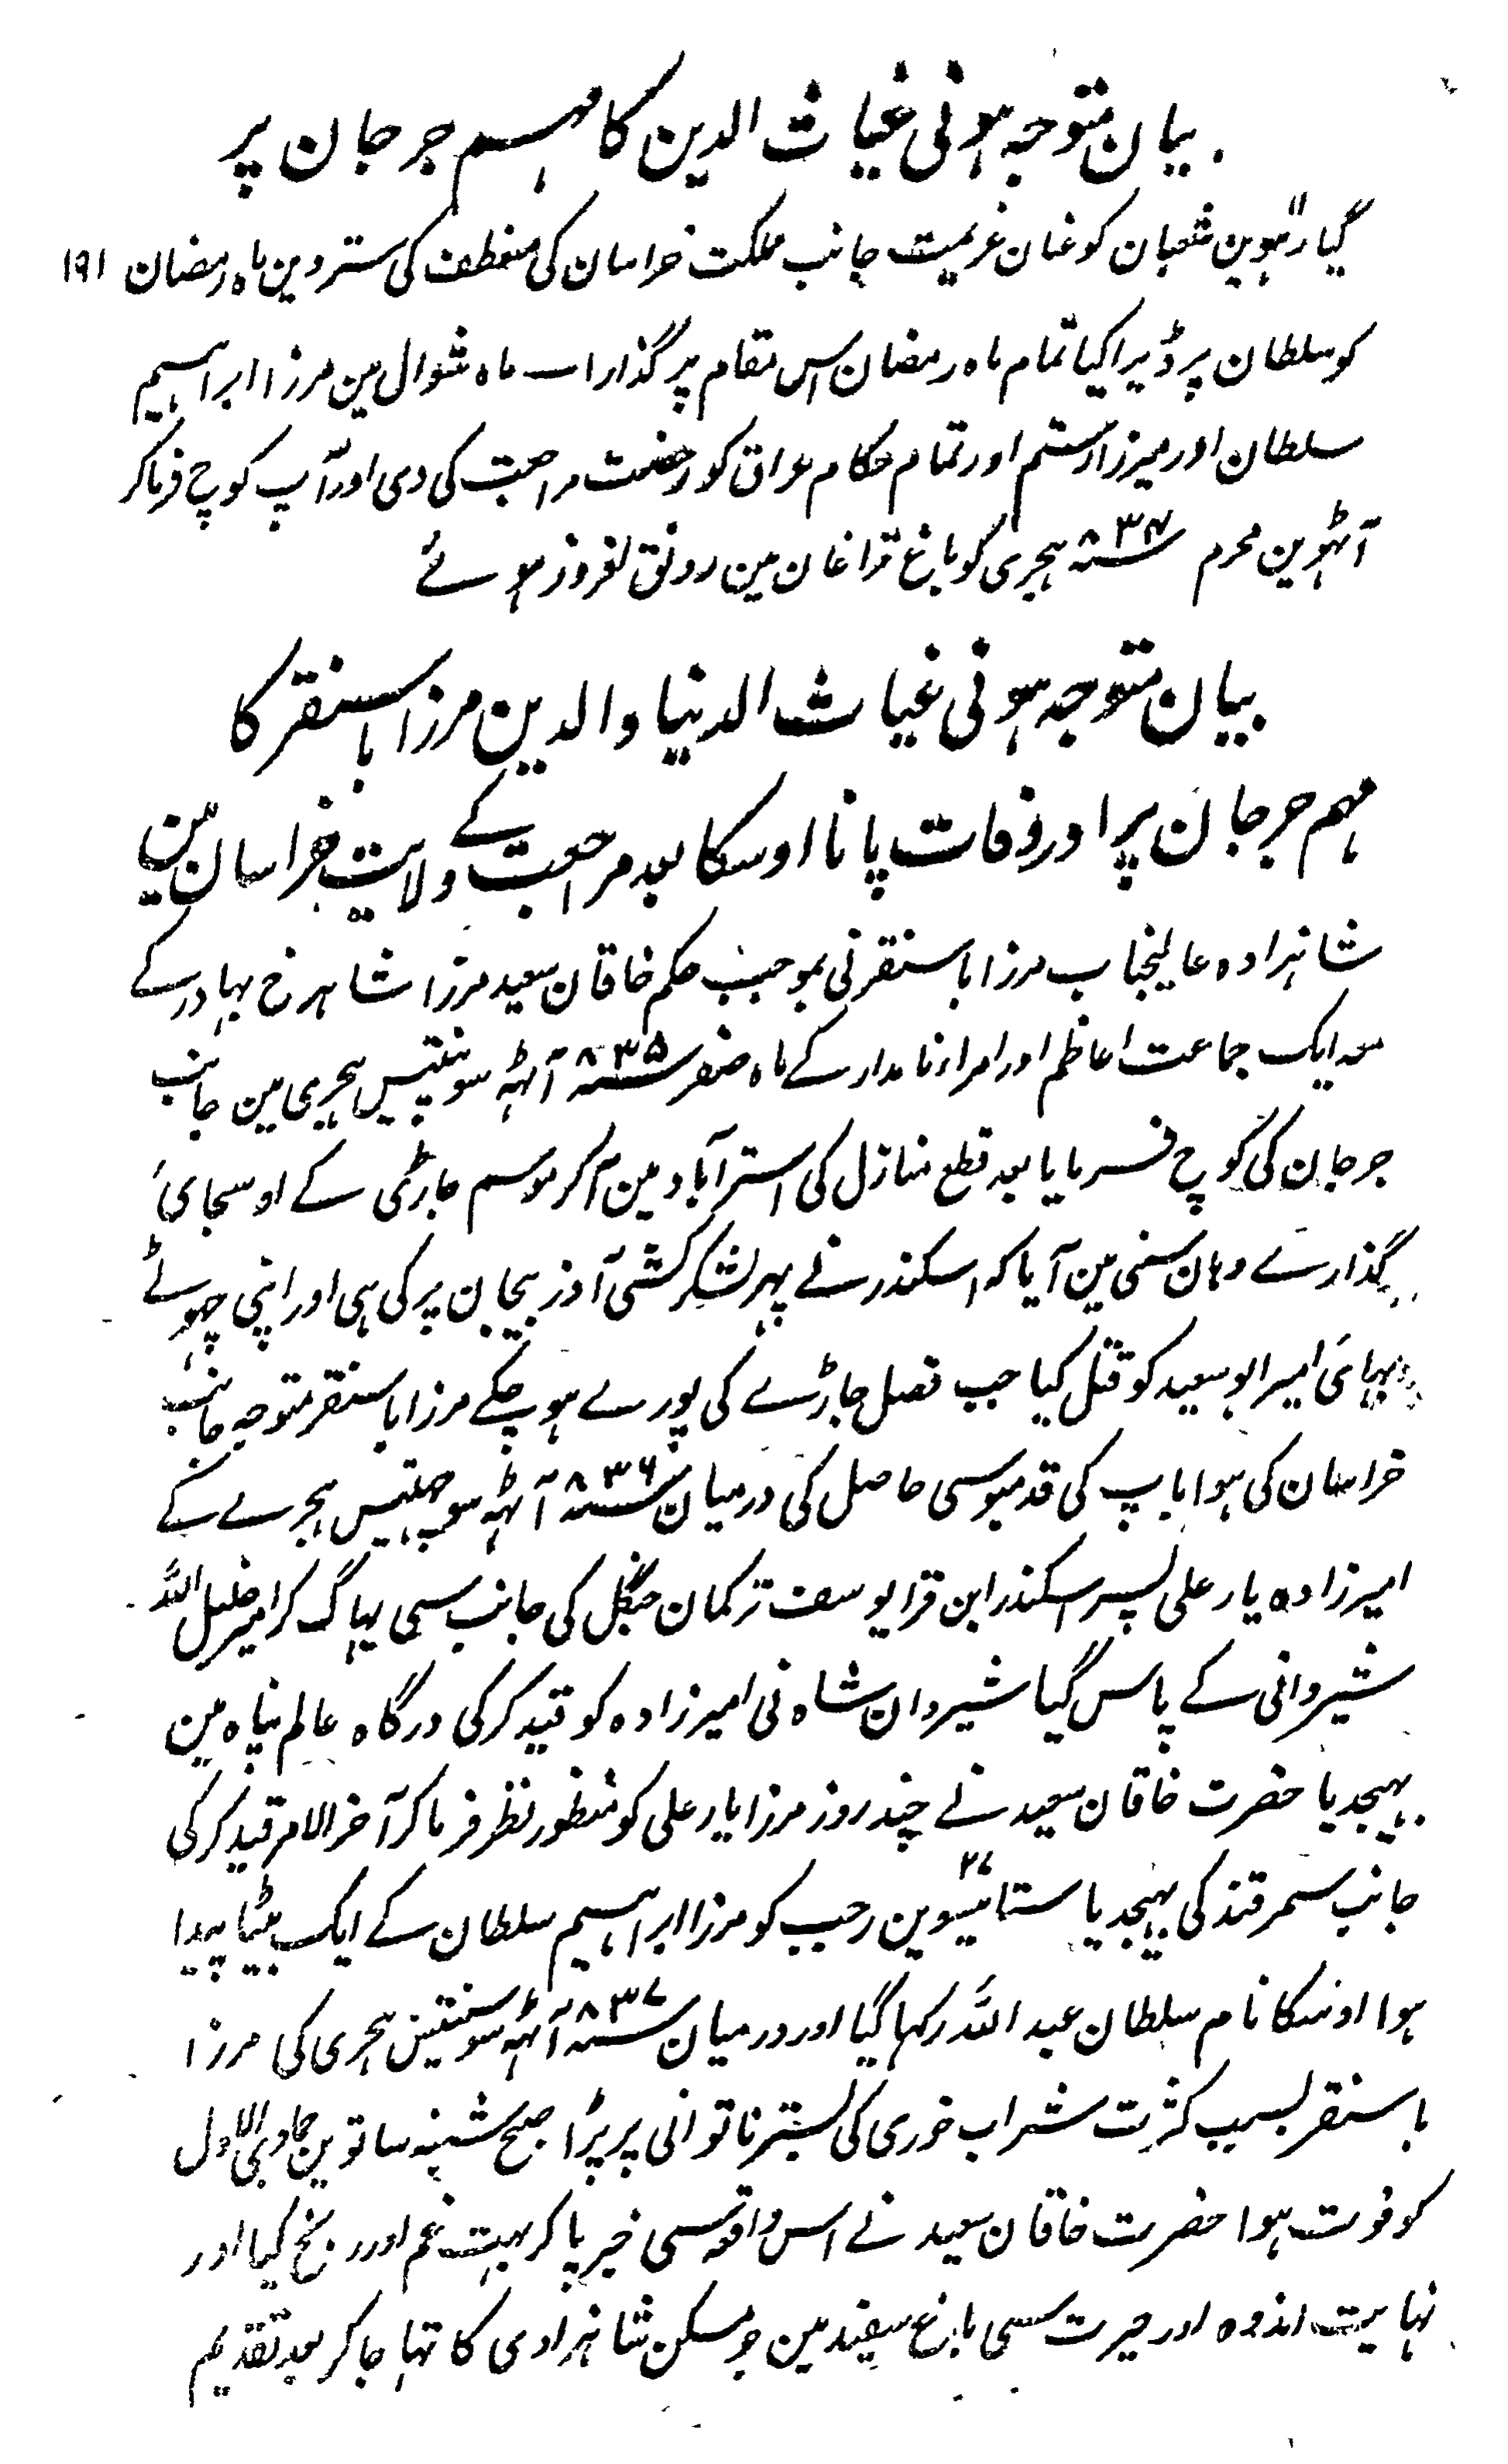 بیان متوجہ ہونی غیاث الدین کا مہم جرجان پر
گیارہوین شعبان کو عنان عزیمت جانب مملکت خراسان کی منعطف کی ستروین ماہ رمضان ۱۹۱
کو سلطان پر ڈیرا کیا تمام ماہ رمضان اس مقام پر گذارا ماہ شوال مین مرزا ابراہیم
سلطان اور میرزا رستم اور تمام حکام عراق کو رخصت مراجعت کی دی اور آپ کوچ فرماکر
آٹہوین محرم سنہ ۸۳۴ ہجری کو باغ زاغان مین رونق افروز ہوئے
بیان متوجہ ہونی غیاث الدنیا والدین مرزا باسنقر کا
مہم جرجان پر اور وفات پانا اوسکا بعد مراجعت کے ولایت خراسان مین
شاہزادہ عالیجناب مرزا باسنقر نی بموجب حکم خاقان سعید مرزا شاہرخ بہادر کے
معہ ایک جماعت اعاظم اور امراء نامدار کے ماہ صفر سنہ ۸۳۵ آٹہہ سو پنتیس ہجری مین جانب
جرجان کی کوچ فرمایا بعد قطع منازل کی استرآباد مین آکر موسم جاڑی کے اوسجائ
گذارے وہان سننی مین آیا کہ اسکندر نے پہر لشکر کشی آذربیجان پر کی ہی اور اپنی چہوٹے
بہائی امیر ابوسعید کو قتل کیا جب فصل جاڑے کی پورے ہوچکے مرزا باسنقر متوجہ جانب
خراسان کی ہوا باپ کی قدمبوسی حاصل کی درمیان سنہ ۸۳۶ آٹہہ سو چہتیس ہجرے کے
امیرزادہ یار علی پسر اسکندر ابن قرا یوسف ترکمان جنگل کی جانب سی بہاگ کر امیر خلیل اللہ
شیروانی کے پاس گیا شیروان شاہ نی امیرزادہ کو قید کرکی درگاہ عالم پناہ مین
بہیجدیا حضرت خاقان سعید نے چند روز مرزا یار علی کو منظور نظر فرماکر آخر الامر قید کرکی
جانب سمرقند کی بہیجدیا ستائیسوین ۲۷ رجب کو مرزا ابراہیم سلطان کے ایک بیٹا پیدا
ہوا اوسکا نام سلطان عبد اللہ رکہا گیا اور درمیان سنہ ۸۳۷ آٹہہ سو سنتیس ہجری کی مرزا
باسنقر بسبب کثرت شراب خوری کی بستر ناتوانی پر پڑا صبح شنبہ ساتوین جمادی الاول
کو فوت ہوا حضرت خاقان سعید نے اس واقعہ سی خبر پاکر بہت غم اور رنج کیا اور
نہایت اندوہ اور حیرت سی باغ سفید مین جو مسکن شاہزادی کا تہا جاکر بعد تقدیم